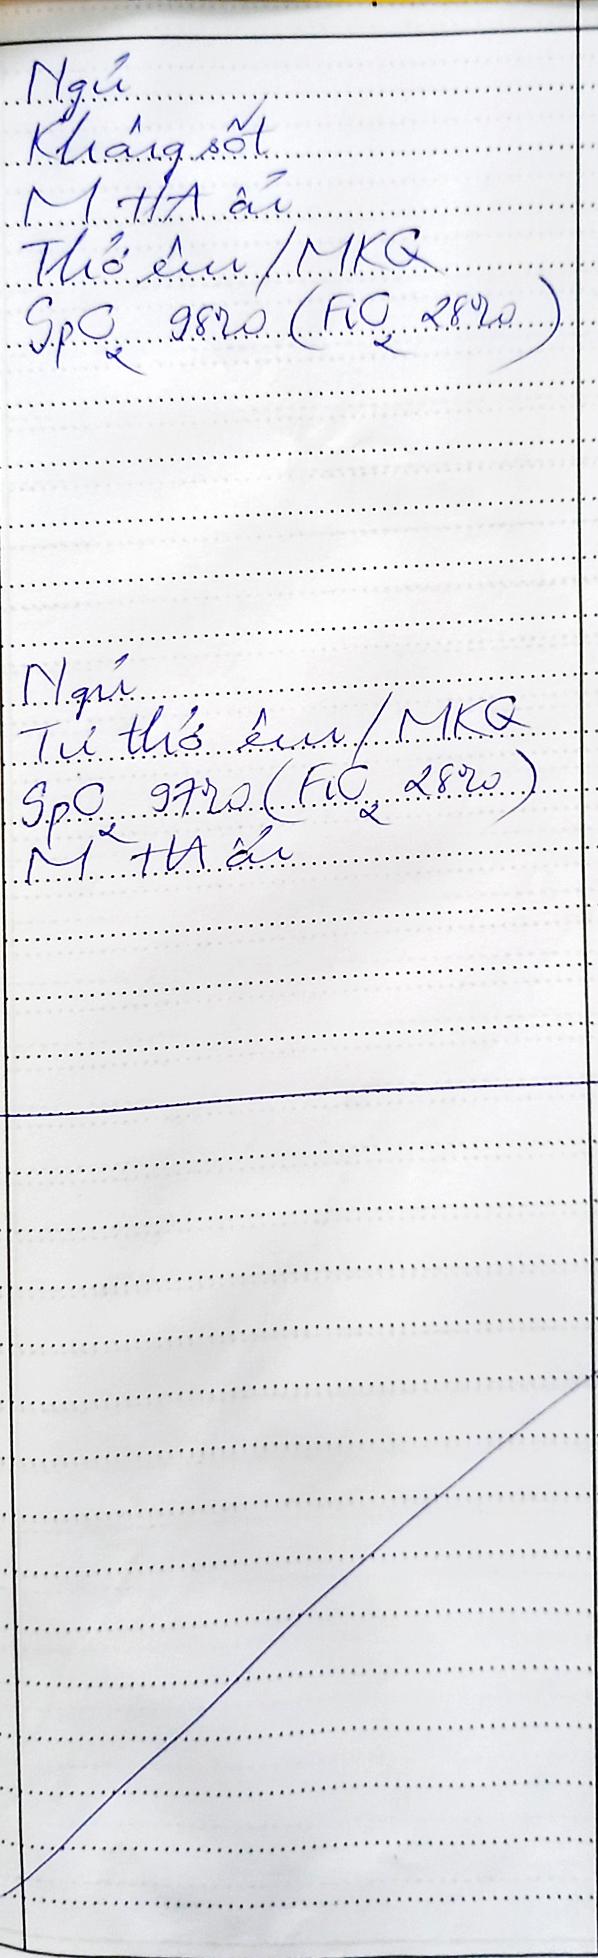 Ngủ
Không sốt
M HA ổn
Thở êm / MKQ
SpO2 98% (FiO2 28%)
Ngủ
Tự thở êm / MKQ
SpO2 97% (FiO2 28%)
M HA ổn